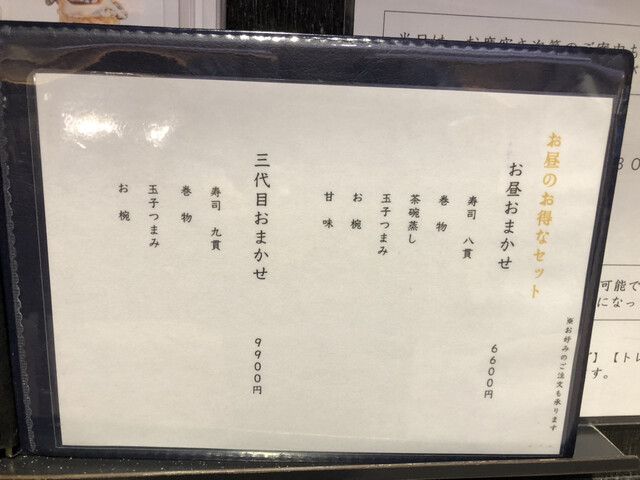 お昼のお得なセット
※お好みのご注文も承ります
お昼おまかせ 6600円
寿司 八貫
巻物
茶碗蒸し
玉子つまみ
お椀
甘味
三代目おまかせ 9900円
寿司 九貫
巻物
玉子つまみ
お椀
可能で
になっ
す。